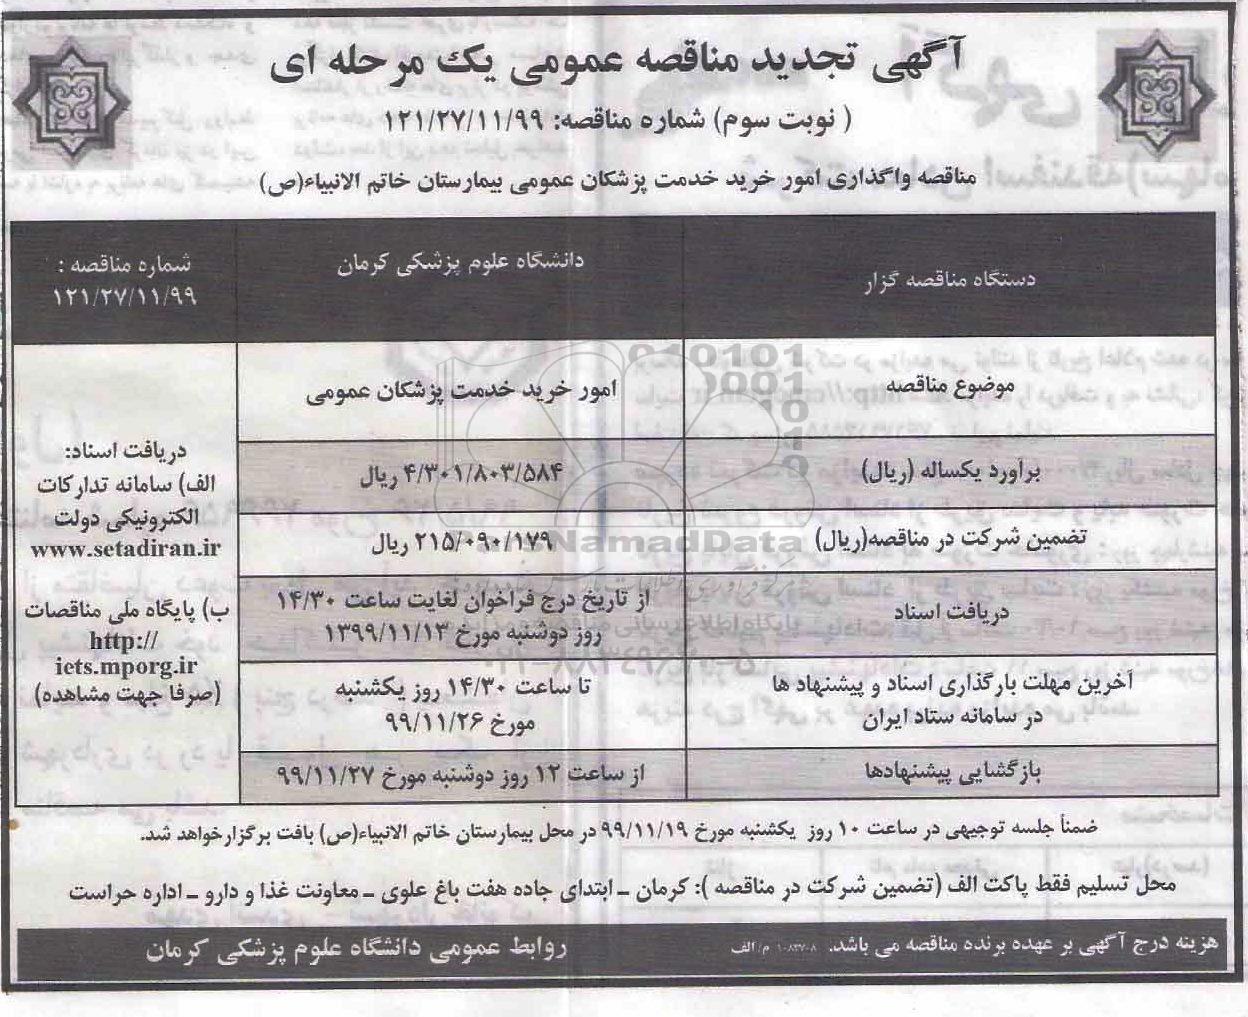 آگهی تجدید مناقصه عمومی یک مرحله ای
( نوبت سوم) شماره مناقصه: ۱۲۱/۲۷/۱۱/۹۹
مناقصه واگذاری امور خرید خدمت پزشکان عمومی بیمارستان خاتم الانبیاء(ص)
دستگاه مناقصه گزار
دانشگاه علوم پزشکی کرمان
شماره مناقصه :
۱۲۱/۲۷/۱۱/۹۹
موضوع مناقصه
امور خرید خدمت پزشکان عمومی
برآورد یکساله (ریال)
۴/۳۰۱/۸۰۳/۵۸۴ ریال
تضمین شرکت در مناقصه(ریال)
۲۱۵/۰۹۰/۱۷۹ ریال
دریافت اسناد
از تاریخ درج فراخوان لغایت ساعت ۱۴/۳۰
روز دوشنبه مورخ ۱۳۹۹/۱۱/۱۳
آخرین مهلت بارگذاری اسناد و پیشنهاد ها
در سامانه ستاد ایران
تا ساعت ۱۴/۳۰ روز یکشنبه
مورخ ۹۹/۱۱/۲۶
بازگشایی پیشنهادها
از ساعت ۱۲ روز دوشنبه مورخ ۹۹/۱۱/۲۷
دریافت اسناد:
الف) سامانه تدارکات
الکترونیکی دولت
www.setadiran.ir
ب) پایگاه ملی مناقصات
http://
iets.mporg.ir
(صرفا جهت مشاهده)
ضمناً جلسه توجیهی در ساعت ۱۰ روز یکشنبه مورخ ۹۹/۱۱/۱۹ در محل بیمارستان خاتم الانبیاء(ص) بافت برگزارخواهد شد.
محل تسلیم فقط پاکت الف (تضمین شرکت در مناقصه ): کرمان ـ ابتدای جاده هفت باغ علوی ـ معاونت غذا و دارو ـ اداره حراست
هزینه درج آگهی بر عهده برنده مناقصه می باشد. م/ الف
روابط عمومی دانشگاه علوم پزشکی کرمان